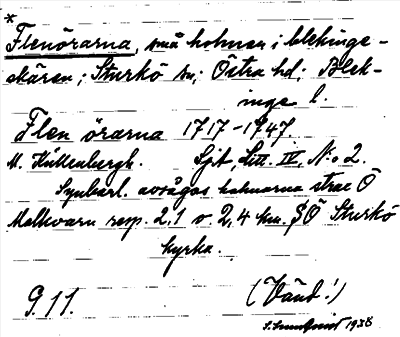 *
Flenörarna, små holmar i blekinge-
skären; Sturkö sn; Östra hd; Blek-
inge l.
Flen örarna 1717-1747.
M. Hüllenbergh. Sjk, Litt. IV, N:o 2.
Synbarl. avsågos holmarna strax Ö
Malkvarn resp. 2,1 o. 2,4 km. SÖ Sturkö
kyrka.
9.11. (Vänd!)
S. Sundquist 1938